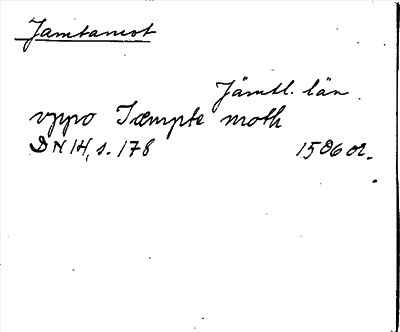 Jamtamot
Jämtl. län.
vppo Jæmpte moth
DN 14, s. 178 1506 or.